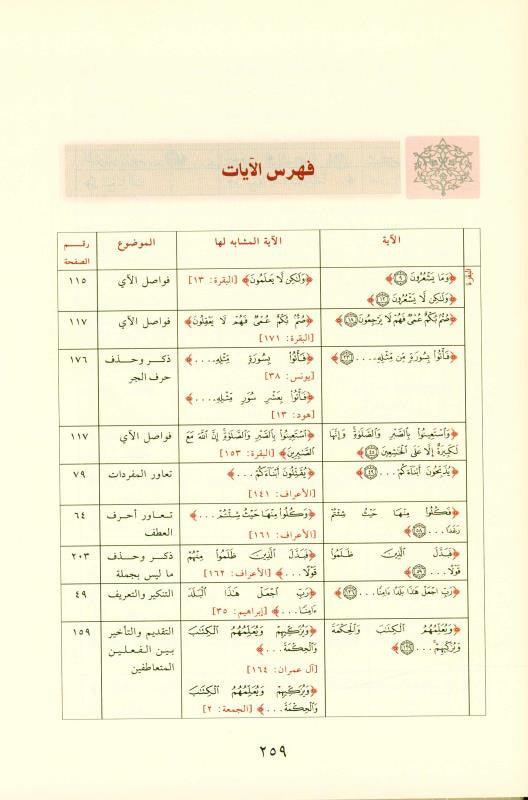 فهرس الآيات
الآية الآية المشابه لها الموضوع رقم
الصفحة
البقرة
﴿وَمَا يَشْعُرُونَ ٩﴾ ﴿وَلَكِن لَّا يَعْلَمُونَ﴾ [البقرة: ١٣] فواصل الآي ١١٥
﴿وَلَكِن لَّا يَشْعُرُونَ ١٢﴾
﴿صُمٌّ بُكْمٌ عُمْيٌ فَهُمْ لَا يَرْجِعُونَ ١٨﴾ ﴿صُمٌّ بُكْمٌ عُمْيٌ فَهُمْ لَا يَعْقِلُونَ﴾ فواصل الآي ١١٧
[البقرة: ١٧١]
﴿فَأْتُوا۟ بِسُورَةٍ مِّن مِّثْلِهِ.... ٢٣﴾ ﴿فَأْتُوا۟ بِسُورَةٍ مِّثْلِهِ....﴾ ذكر وحذف ١٧٦
[يونس: ٣٨] حرف الجر
﴿فَأْتُوا۟ بِعَشْرِ سُوَرٍ مِّثْلِهِ...﴾
[هود: ١٣]
﴿وَٱسْتَعِينُوا۟ بِٱلصَّبْرِ وَٱلصَّلَوٰةِ وَإِنَّهَا ﴿ٱسْتَعِينُوا۟ بِٱلصَّبْرِ وَٱلصَّلَوٰةِ إِنَّ ٱللَّهَ مَعَ فواصل الآي ١١٧
لَكَبِيرَةٌ إِلَّا عَلَى ٱلْخَٰشِعِينَ ٤٥﴾ ٱلصَّٰبِرِينَ﴾ [البقرة: ١٥٣]
﴿يُذَبِّحُونَ أَبْنَآءَكُمْ... ٤٩﴾ ﴿يُقَتِّلُونَ أَبْنَآءَكُمْ...﴾ تعاور المفردات ٧٩
[الأعراف: ١٤١]
﴿فَكُلُوا۟ مِنْهَا حَيْثُ شِئْتُمْ ﴿وَكُلُوا۟ مِنْهَا حَيْثُ شِئْتُمْ...﴾ تعاور أحرف ٦٤
رَغَدًا... ٥٨﴾ [الأعراف: ١٦١] العطف
﴿فَبَدَّلَ ٱلَّذِينَ ظَلَمُوا۟ ﴿فَبَدَّلَ ٱلَّذِينَ ظَلَمُوا۟ مِنْهُمْ ذكر وحذف ٢٠٣
قَوْلًا... ٥٩﴾ قَوْلًا...﴾ [الأعراف: ١٦٢] ما ليس بجملة
﴿رَبِّ ٱجْعَلْ هَٰذَا بَلَدًا ءَامِنًا... ١٢٦﴾ ﴿رَبِّ ٱجْعَلْ هَٰذَا ٱلْبَلَدَ التنكير والتعريف ٤٩
ءَامِنًا...﴾ [إبراهيم: ٣٥]
﴿وَيُعَلِّمُهُمُ ٱلْكِتَٰبَ وَٱلْحِكْمَةَ ﴿وَيُزَكِّيهِمْ وَيُعَلِّمُهُمُ ٱلْكِتَٰبَ التقديم والتأخير ١٥٩
وَيُزَكِّيهِمْ... ١٢٩﴾ وَٱلْحِكْمَةَ...﴾ بين الفعلين
[آل عمران: ١٦٤] المتعاطفين
﴿وَيُزَكِّيهِمْ وَيُعَلِّمُهُمُ ٱلْكِتَٰبَ
وَٱلْحِكْمَةَ...﴾ [الجمعة: ٢]
٢٥٩